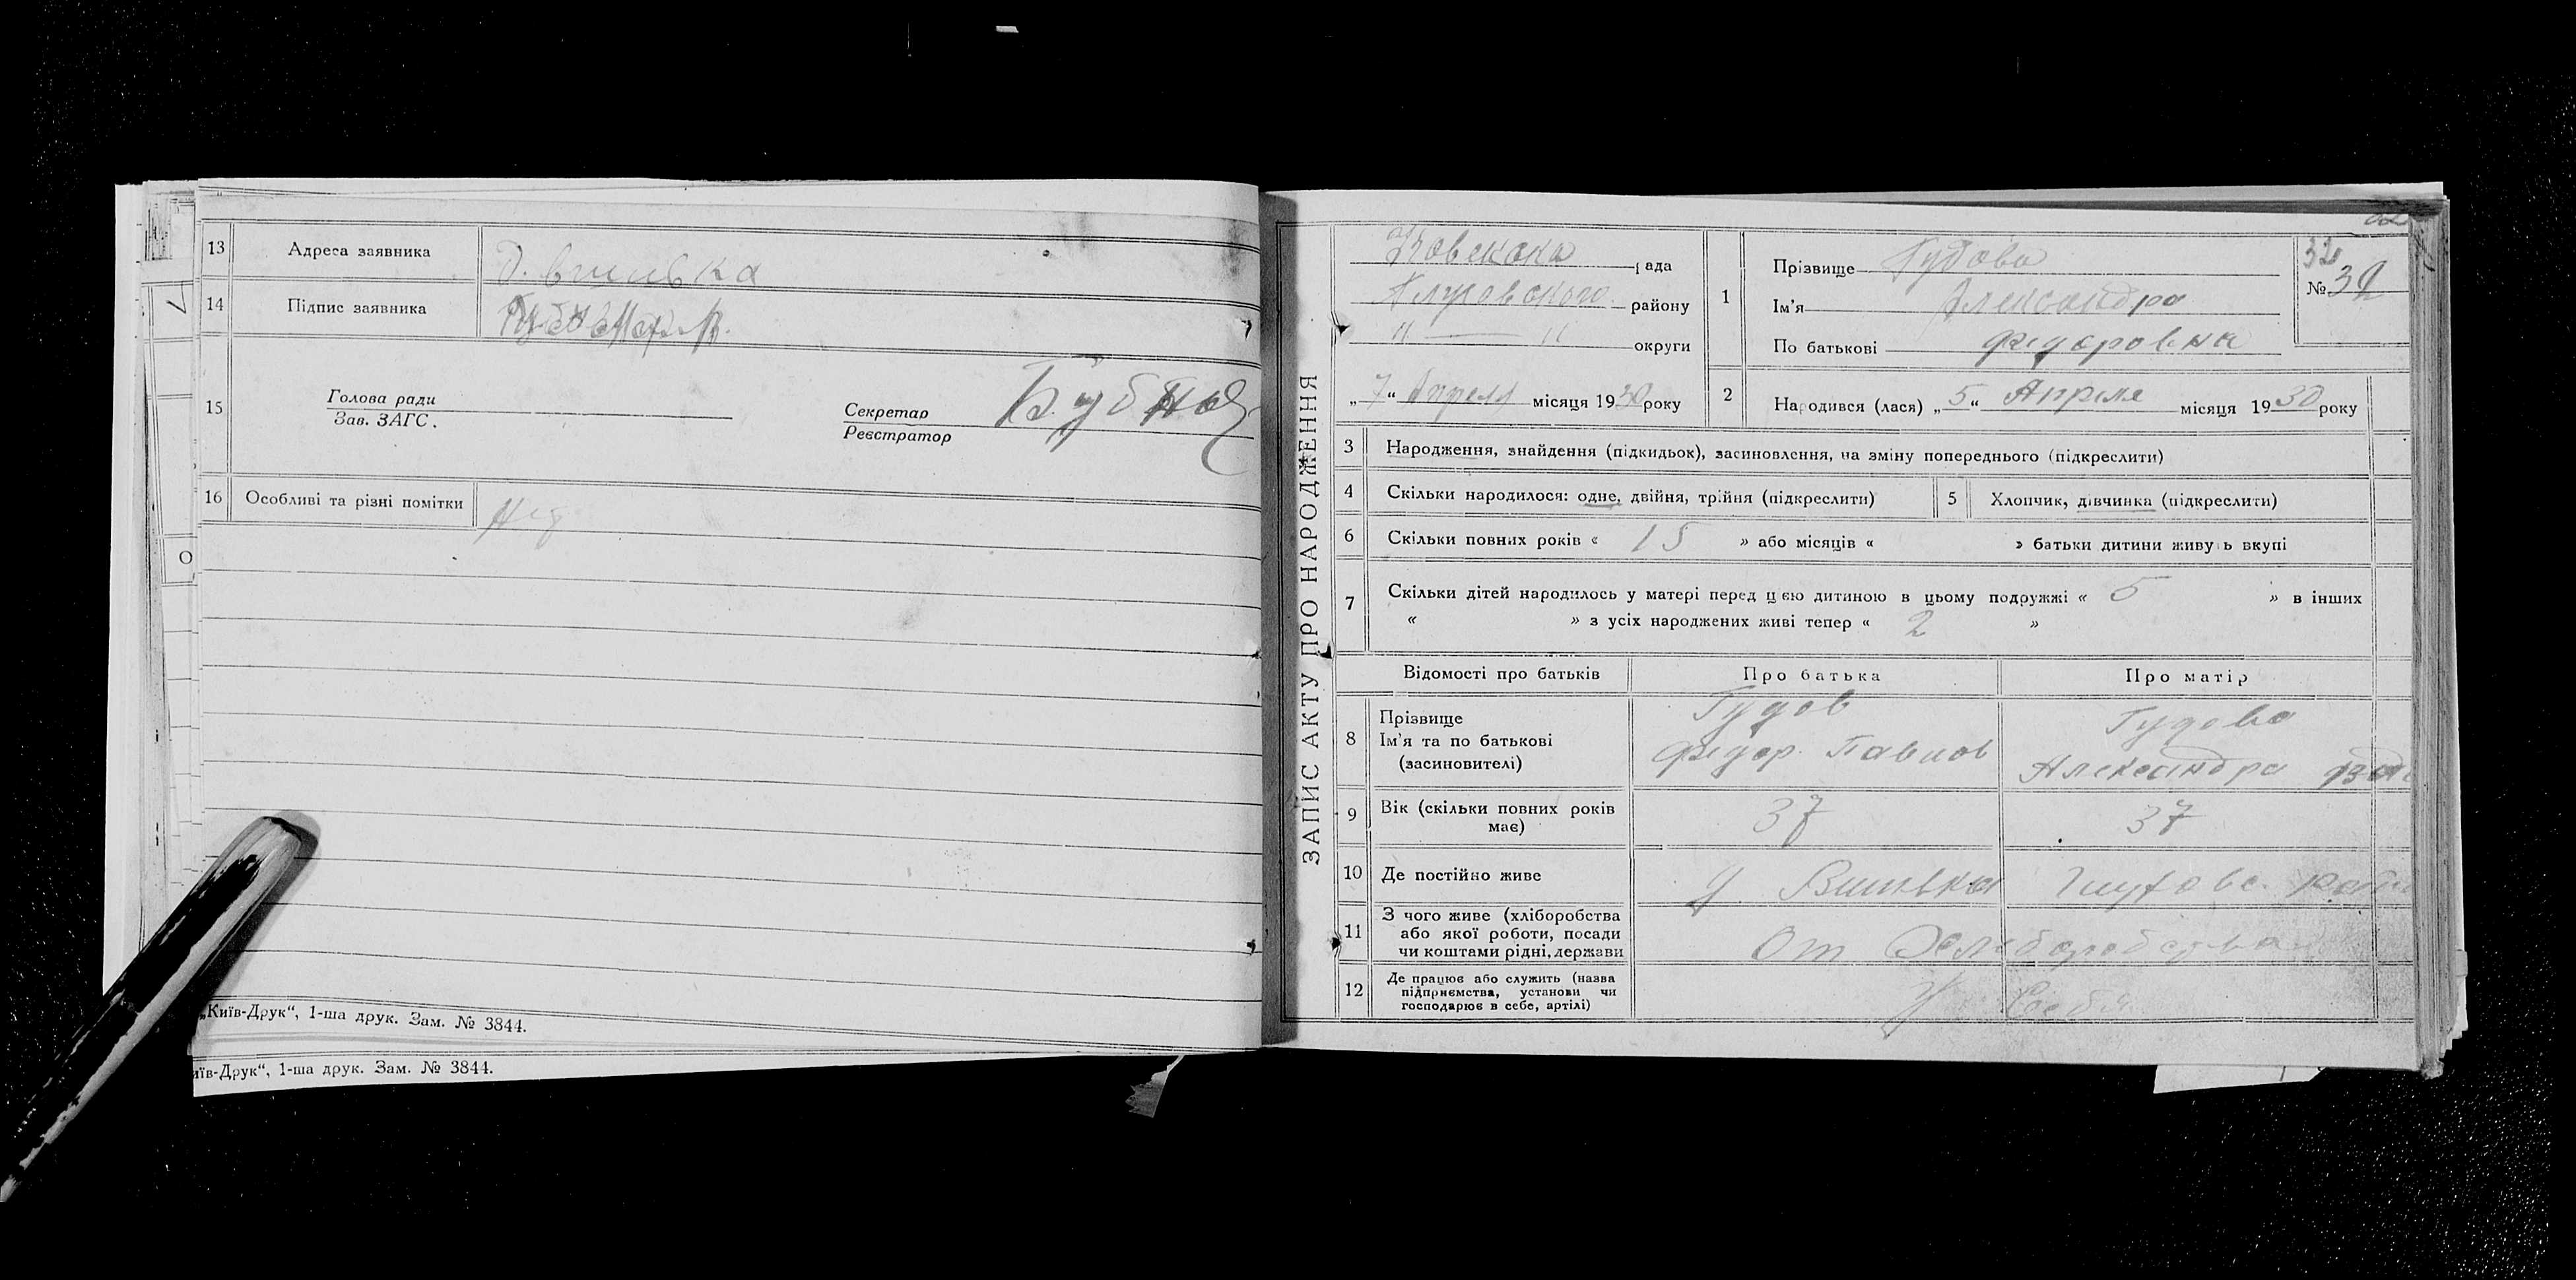 13 Адреса заявника
14 Підпис заявника
15 Голова ради
Зав. ЗАГС.
Секретар
Реєстратор
16 Особливі та різні помітки
„Київ-Друк“, 1-ша друк. Зам. № 3844.
иїв-Друк“, 1-ша друк. Зам. № 3844.
ЗАПИС АКТУ ПРО НАРОДЖЕННЯ
рада
району
округи
„7“ Апреля місяця 1930 року
1 Прізвище Гудова
Ім'я Александра
По батькові Федоровна
32
№ 32
2 Народився (лася) „5“ Апреля місяця 1930 року
3 Народження, знайдення (підкидьок), засиновлення, на зміну попереднього (підкреслити)
4 Скільки народилося: одне, двійня, трійня (підкреслити)
5 Хлопчик, дівчинка (підкреслити)
6 Скільки повних років « 15 » або місяців « » батьки дитини живуть вкупі
7 Скільки дітей народилось у матері перед цією дитиною в цьому подружжі « 5 » в інших
« » з усіх народжених живі тепер « 2 »
Відомості про батьків Про батька Про матір
8 Прізвище
Ім'я та по батькові
(засиновителі)
Гудов
Федор. Павлов
Гудова
Александра
9 Вік (скільки повних років
має)
37 37
10 Де постійно живе
11 З чого живе (хліборобства
або якої роботи, посади
чи коштами рідні, держави
От
12 Де працює або служить (назва
підприємства, установи чи
господарює в себе, артілі)
У Себя